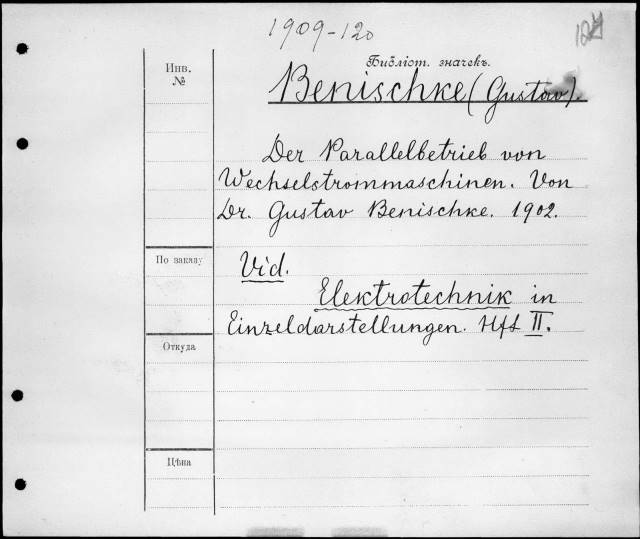 1909-120
Библіот. значекъ.
Инв.
№
Benischke (Gustav).
Der Parallelbetrieb von
Wechselstrommaschinen. Von
Dr. Gustav Benischke. 1902.
По заказу
Vid.
Elektrotechnik in
Einzeldarstellungen. Hft II.
Откуда
Цѣна